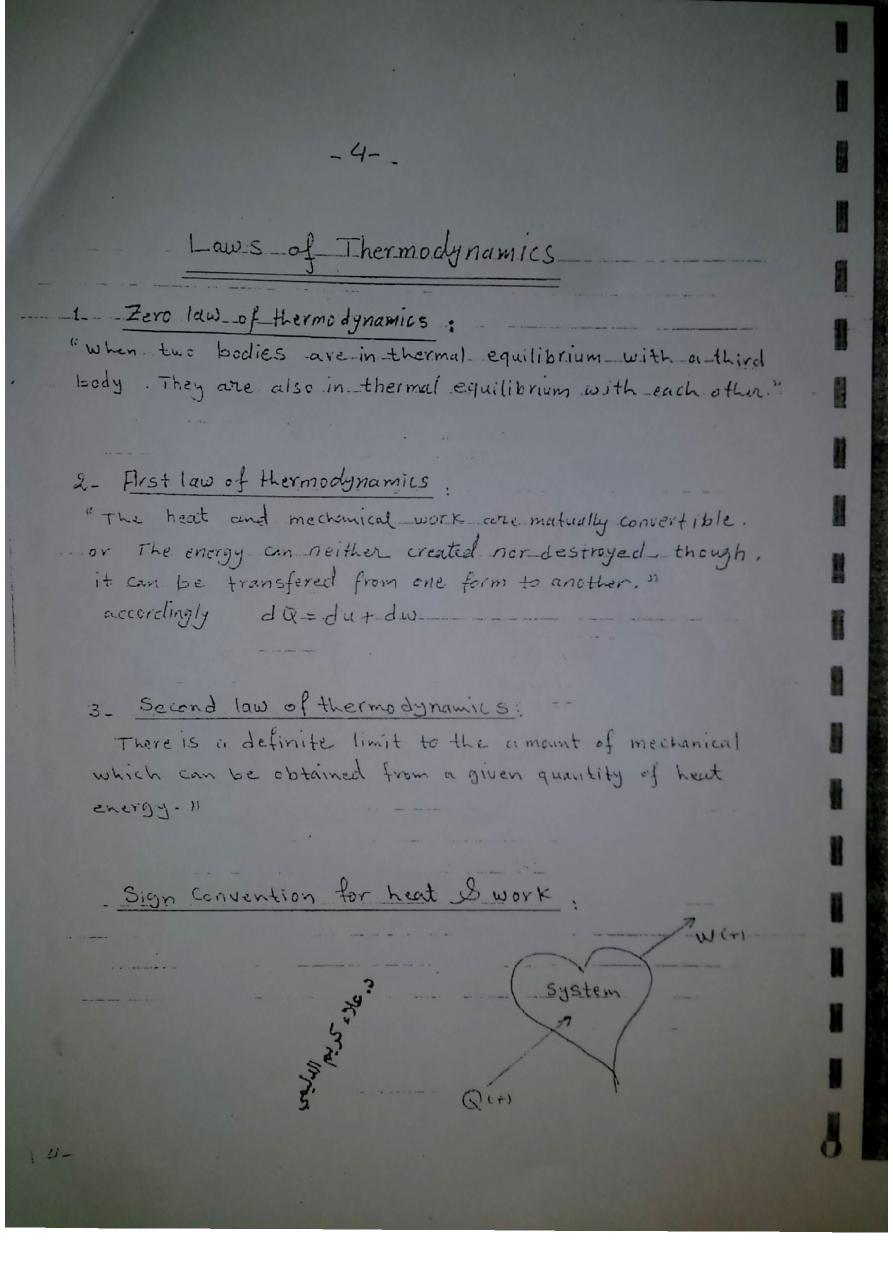 - 4 -
Laws of Thermodynamics
1- Zero law of thermodynamics :
"When two bodies are in thermal equilibrium with a third
body . They are also in thermal equilibrium with each other."
2- First law of thermodynamics :
"The heat and mechanical work are mutually convertible .
or The energy can neither created nor destroyed though ,
it can be transfered from one form to another."
accordingly dQ = du + dw
3- Second law of thermodynamics :
There is a definite limit to the amount of mechanical
which can be obtained from a given quantity of heat
energy."
- Sign Convention for heat & work :
W (+)
System
Q (+)
د. علاء كريم